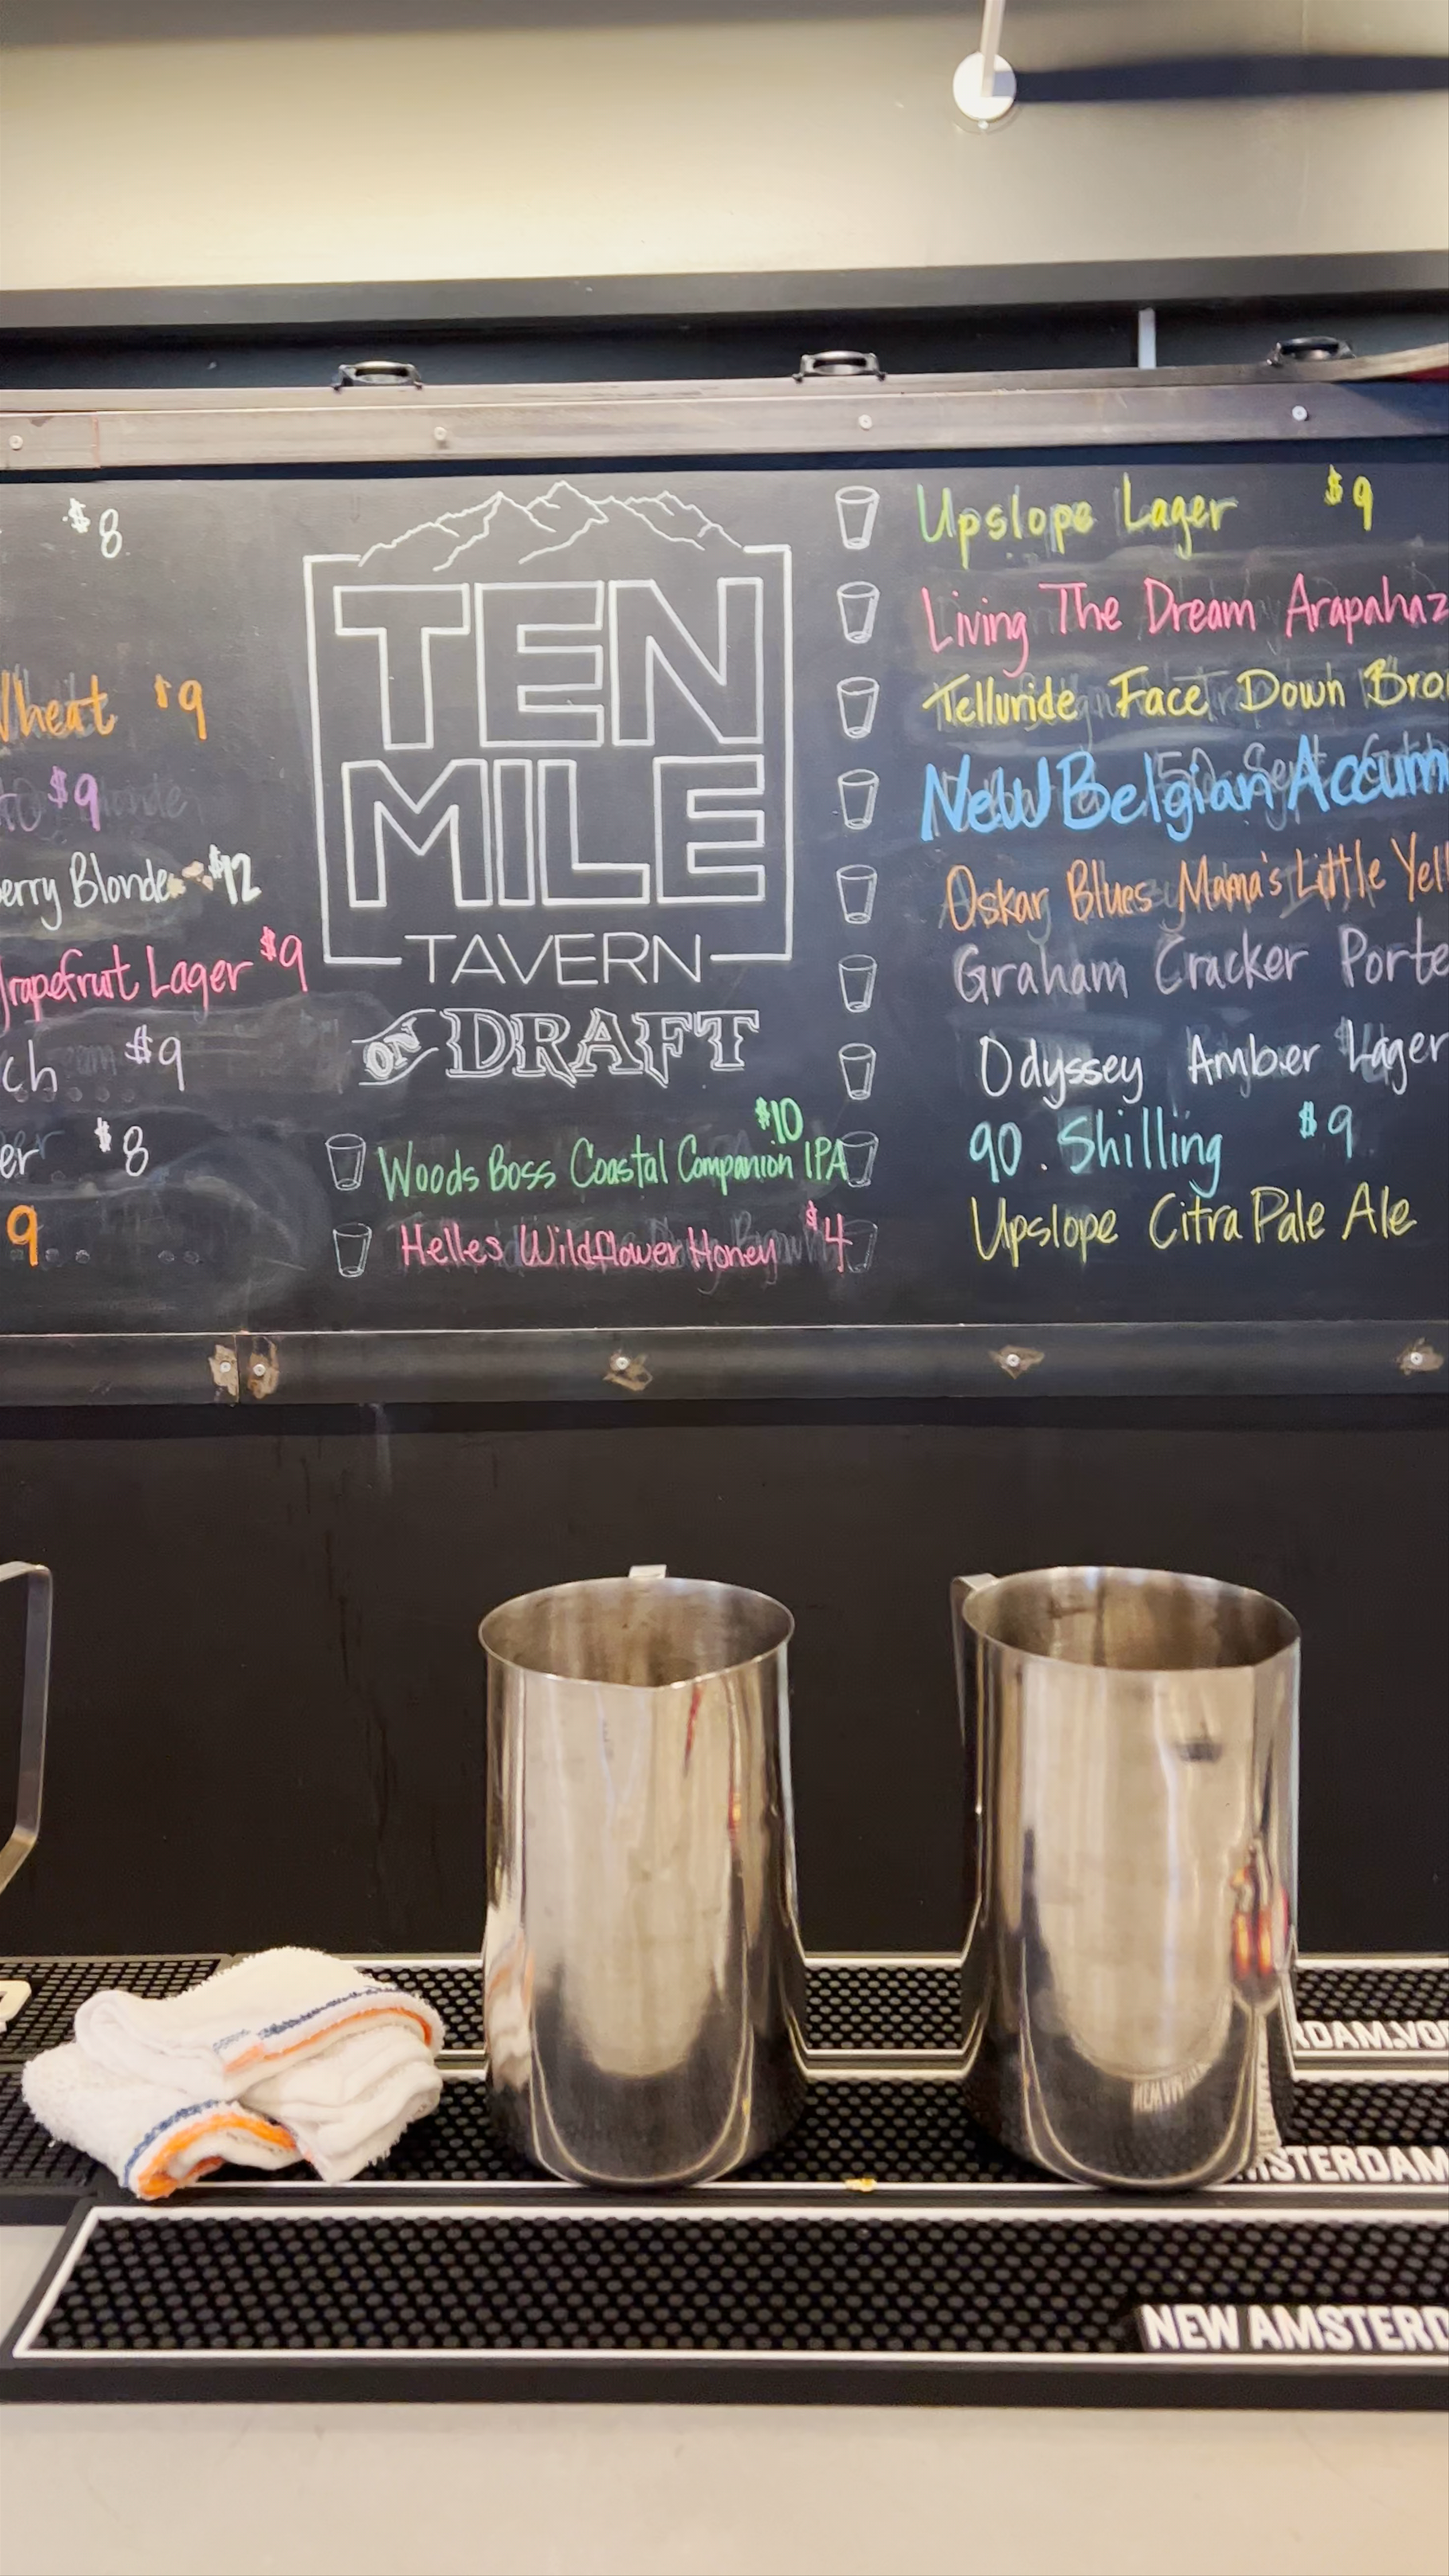 $8
$9
$9
Blonde $12
Grapefruit Lager $9
$9
$8
9
TEN
MILE
TAVERN
ON DRAFT
$10
Woods Boss Coastal Companion IPA
Helles Wildflower Honey $4
Upslope Lager $9
Living The Dream Arapahaz
Telluride Face Down
New Belgian
Oskar Blues Mama's Little
Graham Cracker
Odyssey Amber Lager
90. Shilling $9
Upslope Citra Pale Ale
RDAM.VOD
MSTERDAM
NEW AMSTERD